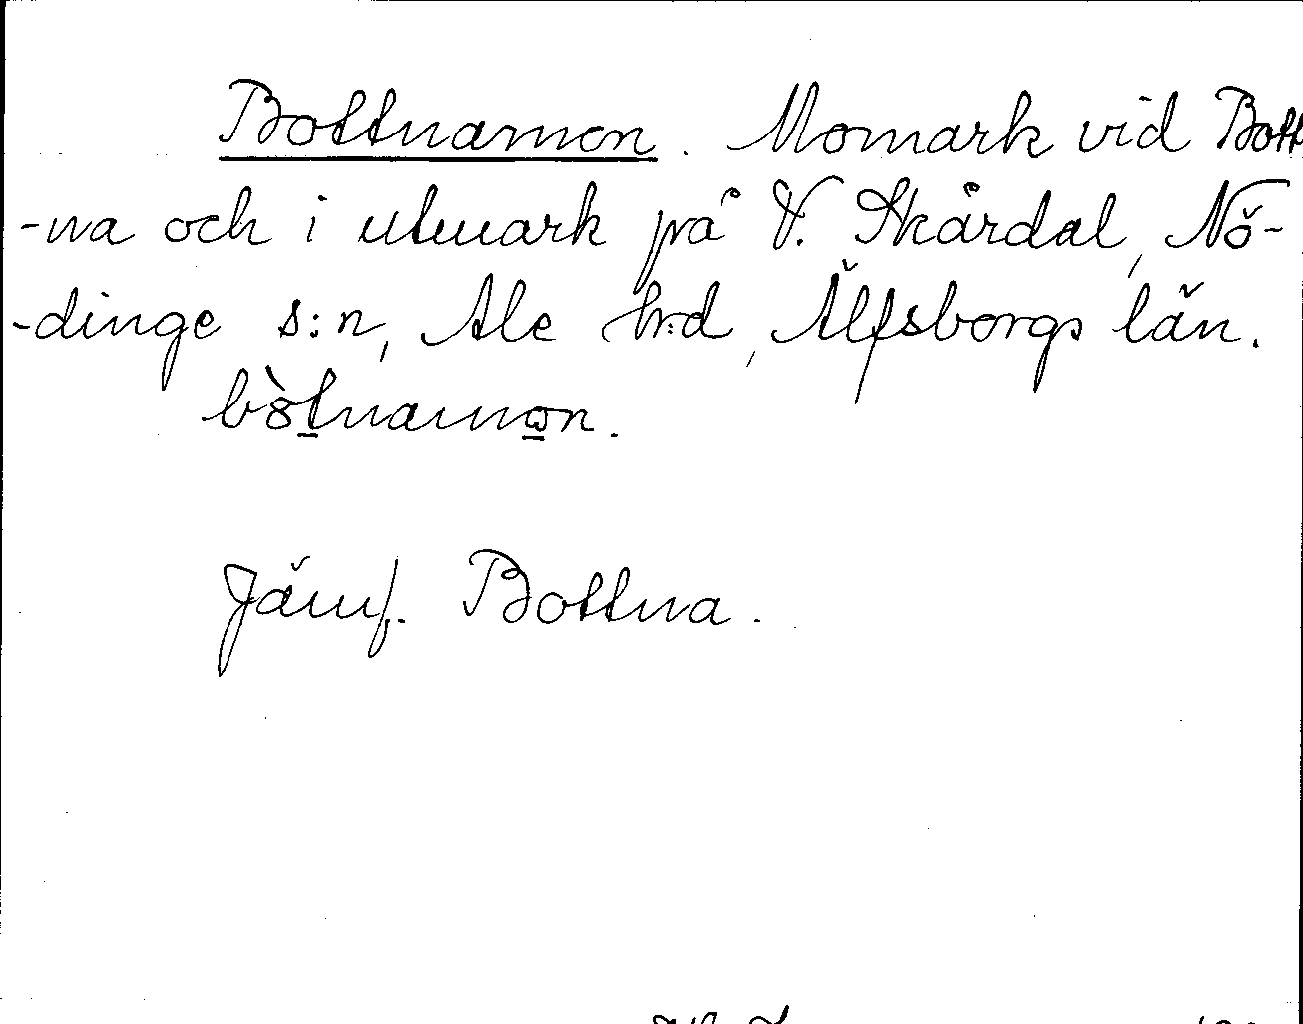 Bottnamon. Momark vid Bott
-na och i utmark på V. Skårdal, Nö-
-dinge s:n, Ale h:d, Älfsborgs län.
bòtnamon.
Jämf. Bottna.